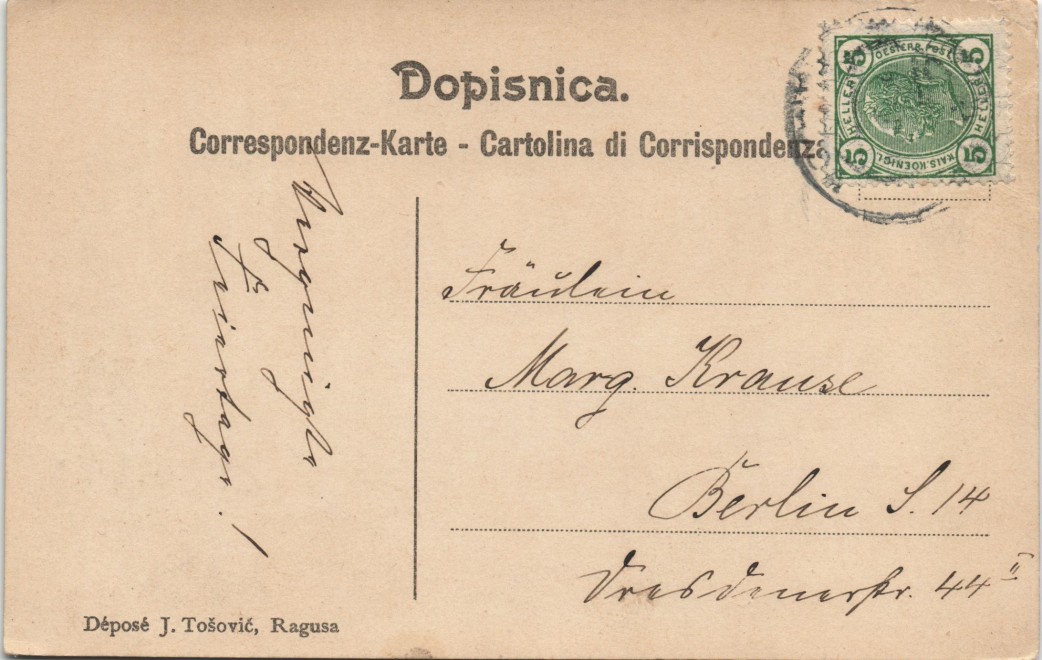 Dopisnica.
Correspondenz-Karte - Cartolina di Corrispondenz
5 5 5 5
OESTERR. POST
HELLER HELLER
KAIS. KOENIGL
Vergnügte
Feiertage!
Fräulein
Marg. Krause
Berlin S. 14
Dresdenerstr. 44 II
Déposé J. Tošović, Ragusa